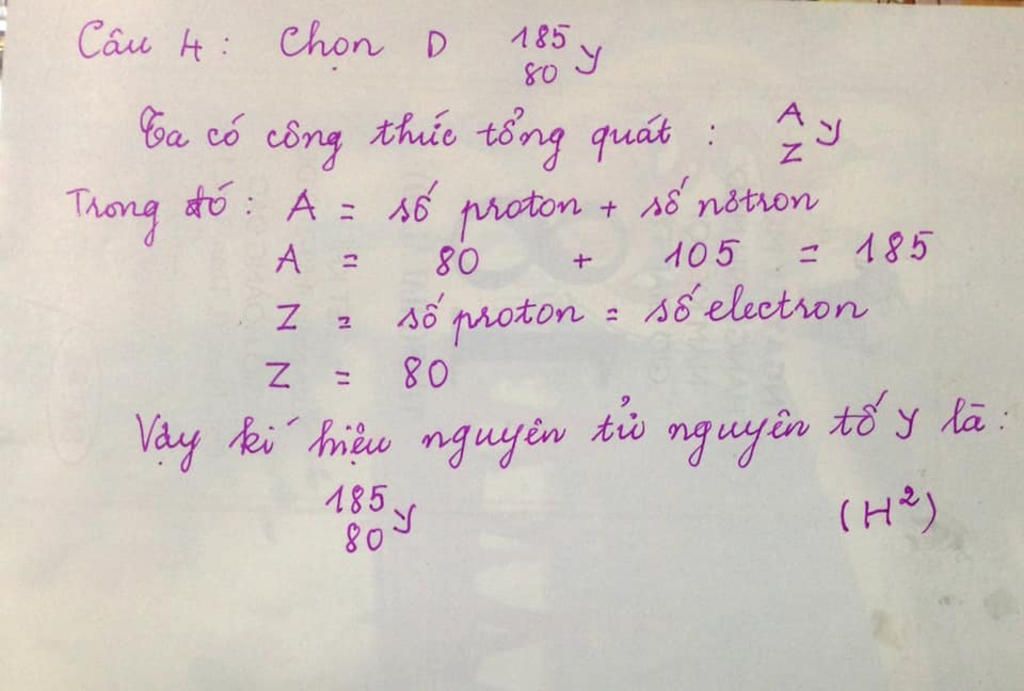 Câu 4: Chọn D ¹⁸⁵₈₀Y
Ta có công thức tổng quát : ᴬ_Z Y
Trong đó: A = số proton + số nơtron
A = 80 + 105 = 185
Z = số proton = số electron
Z = 80
Vậy kí hiệu nguyên tử nguyên tố Y là:
¹⁸⁵₈₀Y (H²)